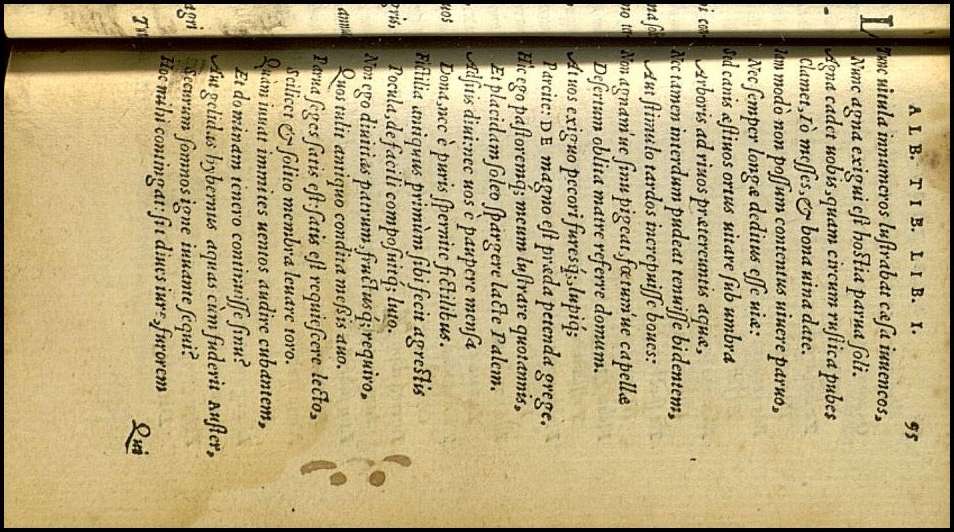 ALB. TIB. LIB. I. 95
Tunc uitula innumeros lustrabat cæsa iuuencos,
Nunc agna exigui est hostia parua soli.
Agna cadet uobis, quam circum rustica pubes
Clamet, Iò messes, & bona uina date.
Iam modò non possum contentus uiuere paruo,
Nec semper longæ deditus esse uiæ:
Sed canis æstiuos ortus uitare sub umbra
Arboris ad riuos prætereuntis aquæ,
Nec tamen interdum pudeat tenuisse bidentem,
Aut stimulo tardos increpuisse boues:
Non agnam'ue sinu pigeat, fœtum'ue capellæ
Desertum oblita matre referre domum.
At uos exiguo pecori furesq́;, lupiq́;
Parcite: DE magno est præda petenda grege.
Hic ego pastoremq́; meum lustrare quotannis,
Et placidam soleo spargere lacte Palem.
Adsitis diui: nec uos è paupere mensa
Dona, nec è puris spernite fictilibus.
Fictilia antiquus primùm sibi fecit agrestis
Pocula, de facili composuitq́; luto.
Non ego diuitias patrum, fructusq́; requiro,
Quos tulit antiquo condita messis auo.
Parua seges satis est: satis est requiescere lecto,
Scilicet & solito membra leuare toro.
Quam iuuat immites uentos audire cubantem,
Et dominam tenero continuisse sinu?
Aut gelidas hybernus aquas cum fuderit Auster,
Securum somnos igne iuuante sequi?
Hoc mihi contingat: sit diues iure, furorem
Qui